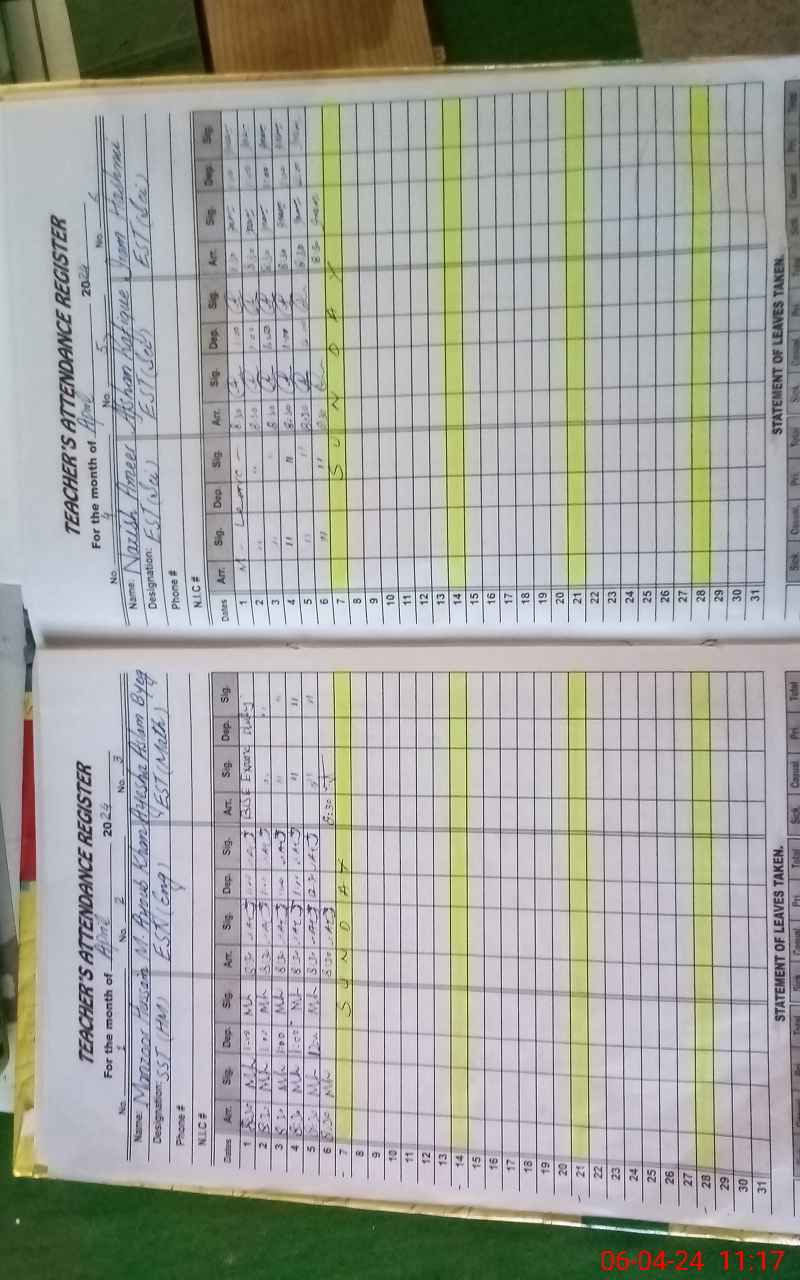 TEACHER'S ATTENDANCE REGISTER
For the month of April 2024
No. 1 No. 2 No. 3
Name: Manzoor Hussain M Ayoub Khan Ayesha Aslam Byeg
Designation: SST (HM) EST (Eng) EST (Math)
Phone #
N.I.C #
Dates Arr. Sig. Dep. Sig. Arr. Sig. Dep. Sig. Arr. Sig. Dep. Sig.
1 8:30 Mh 1:00 Mh 8:30 1:00 BISE Exam duty
2 8:30 Mh 1:00 Mh 8:30 1:00 " "
3 8:30 Mh 1:00 Mh 8:30 1:00 " "
4 8:30 Mh 1:00 Mh 8:30 1:00 " "
5 8:30 Mh Mh 8:30 12:30 " "
6 8:30 Mh 8:30 8:30
7 SUNDAY
8
9
10
11
12
13
14
15
16
17
18
19
20
21
22
23
24
25
26
27
28
29
30
31
STATEMENT OF LEAVES TAKEN.
Casual Pri. Total Sick Casual Pri. Total Sick Casual Pri. Total
TEACHER'S ATTENDANCE REGISTER
For the month of April 2024
No. 4 No. 5 No. 6
Name: Nazish Ameer Rafique Hashmi
Designation: EST (Sci) EST (Sci) EST (Sci)
Phone #
N.I.C #
Dates Arr. Sig. Dep. Sig. Arr. Sig. Dep. Sig. Arr. Sig. Dep. Sig.
1 M. Leave 8:30 1:00 8:30 1:00
2 " " 8:30 1:00 8:30 1:00
3 " " 8:30 1:00 8:30 1:00
4 " " 8:30 1:00 8:30 1:00
5 " " 8:30 8:30
6 " " 8:30 8:30
7 SUNDAY
8
9
10
11
12
13
14
15
16
17
18
19
20
21
22
23
24
25
26
27
28
29
30
31
STATEMENT OF LEAVES TAKEN.
Sick Casual Pri. Total Sick Casual Pri. Total Sick Casual Pri. Total
06-04-24 11:17